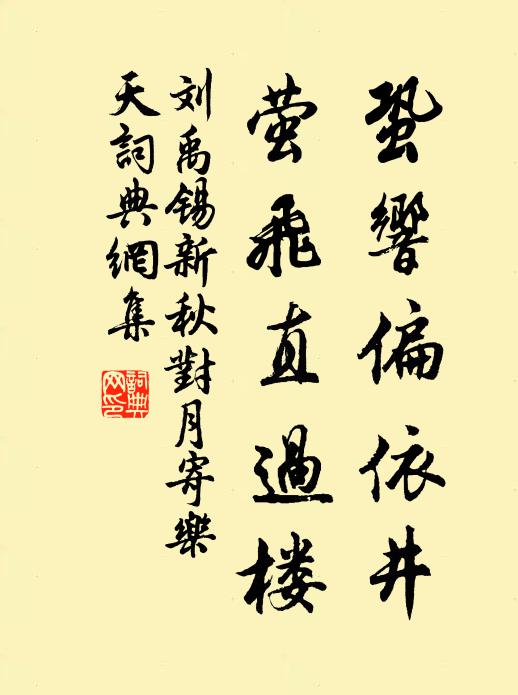 蛩響偏依井
萤飛直過楼
刘禹锡新秋對月寄樂
天詞典網集
詞典网印